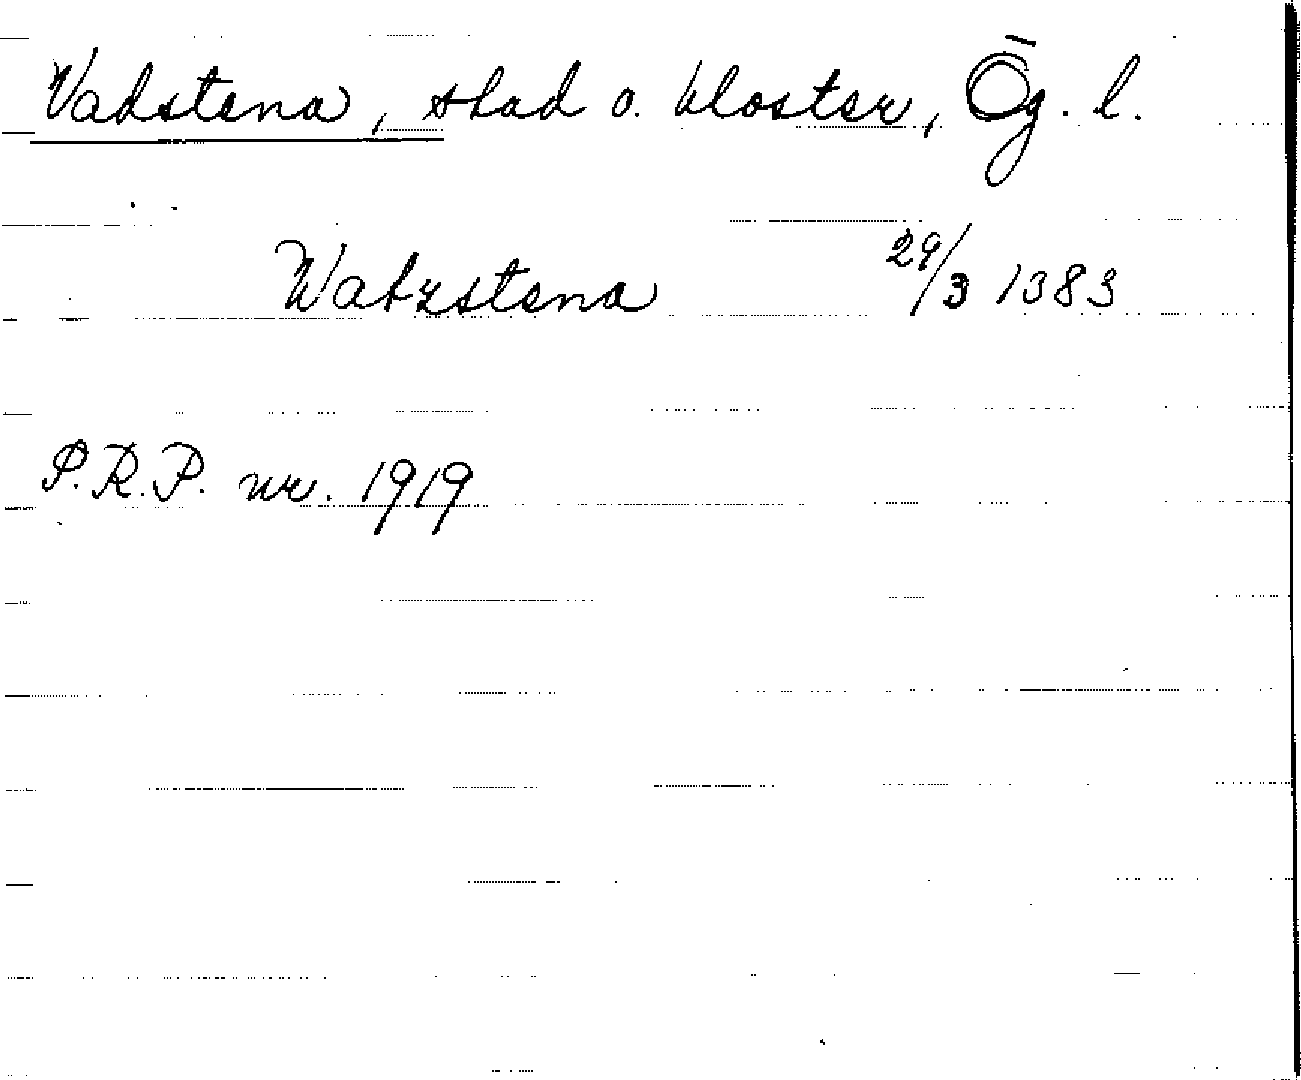 Vadstena, stad o. kloster, Ög. l.
Watzstena 29/3 1383
S.R.P. nr. 1919